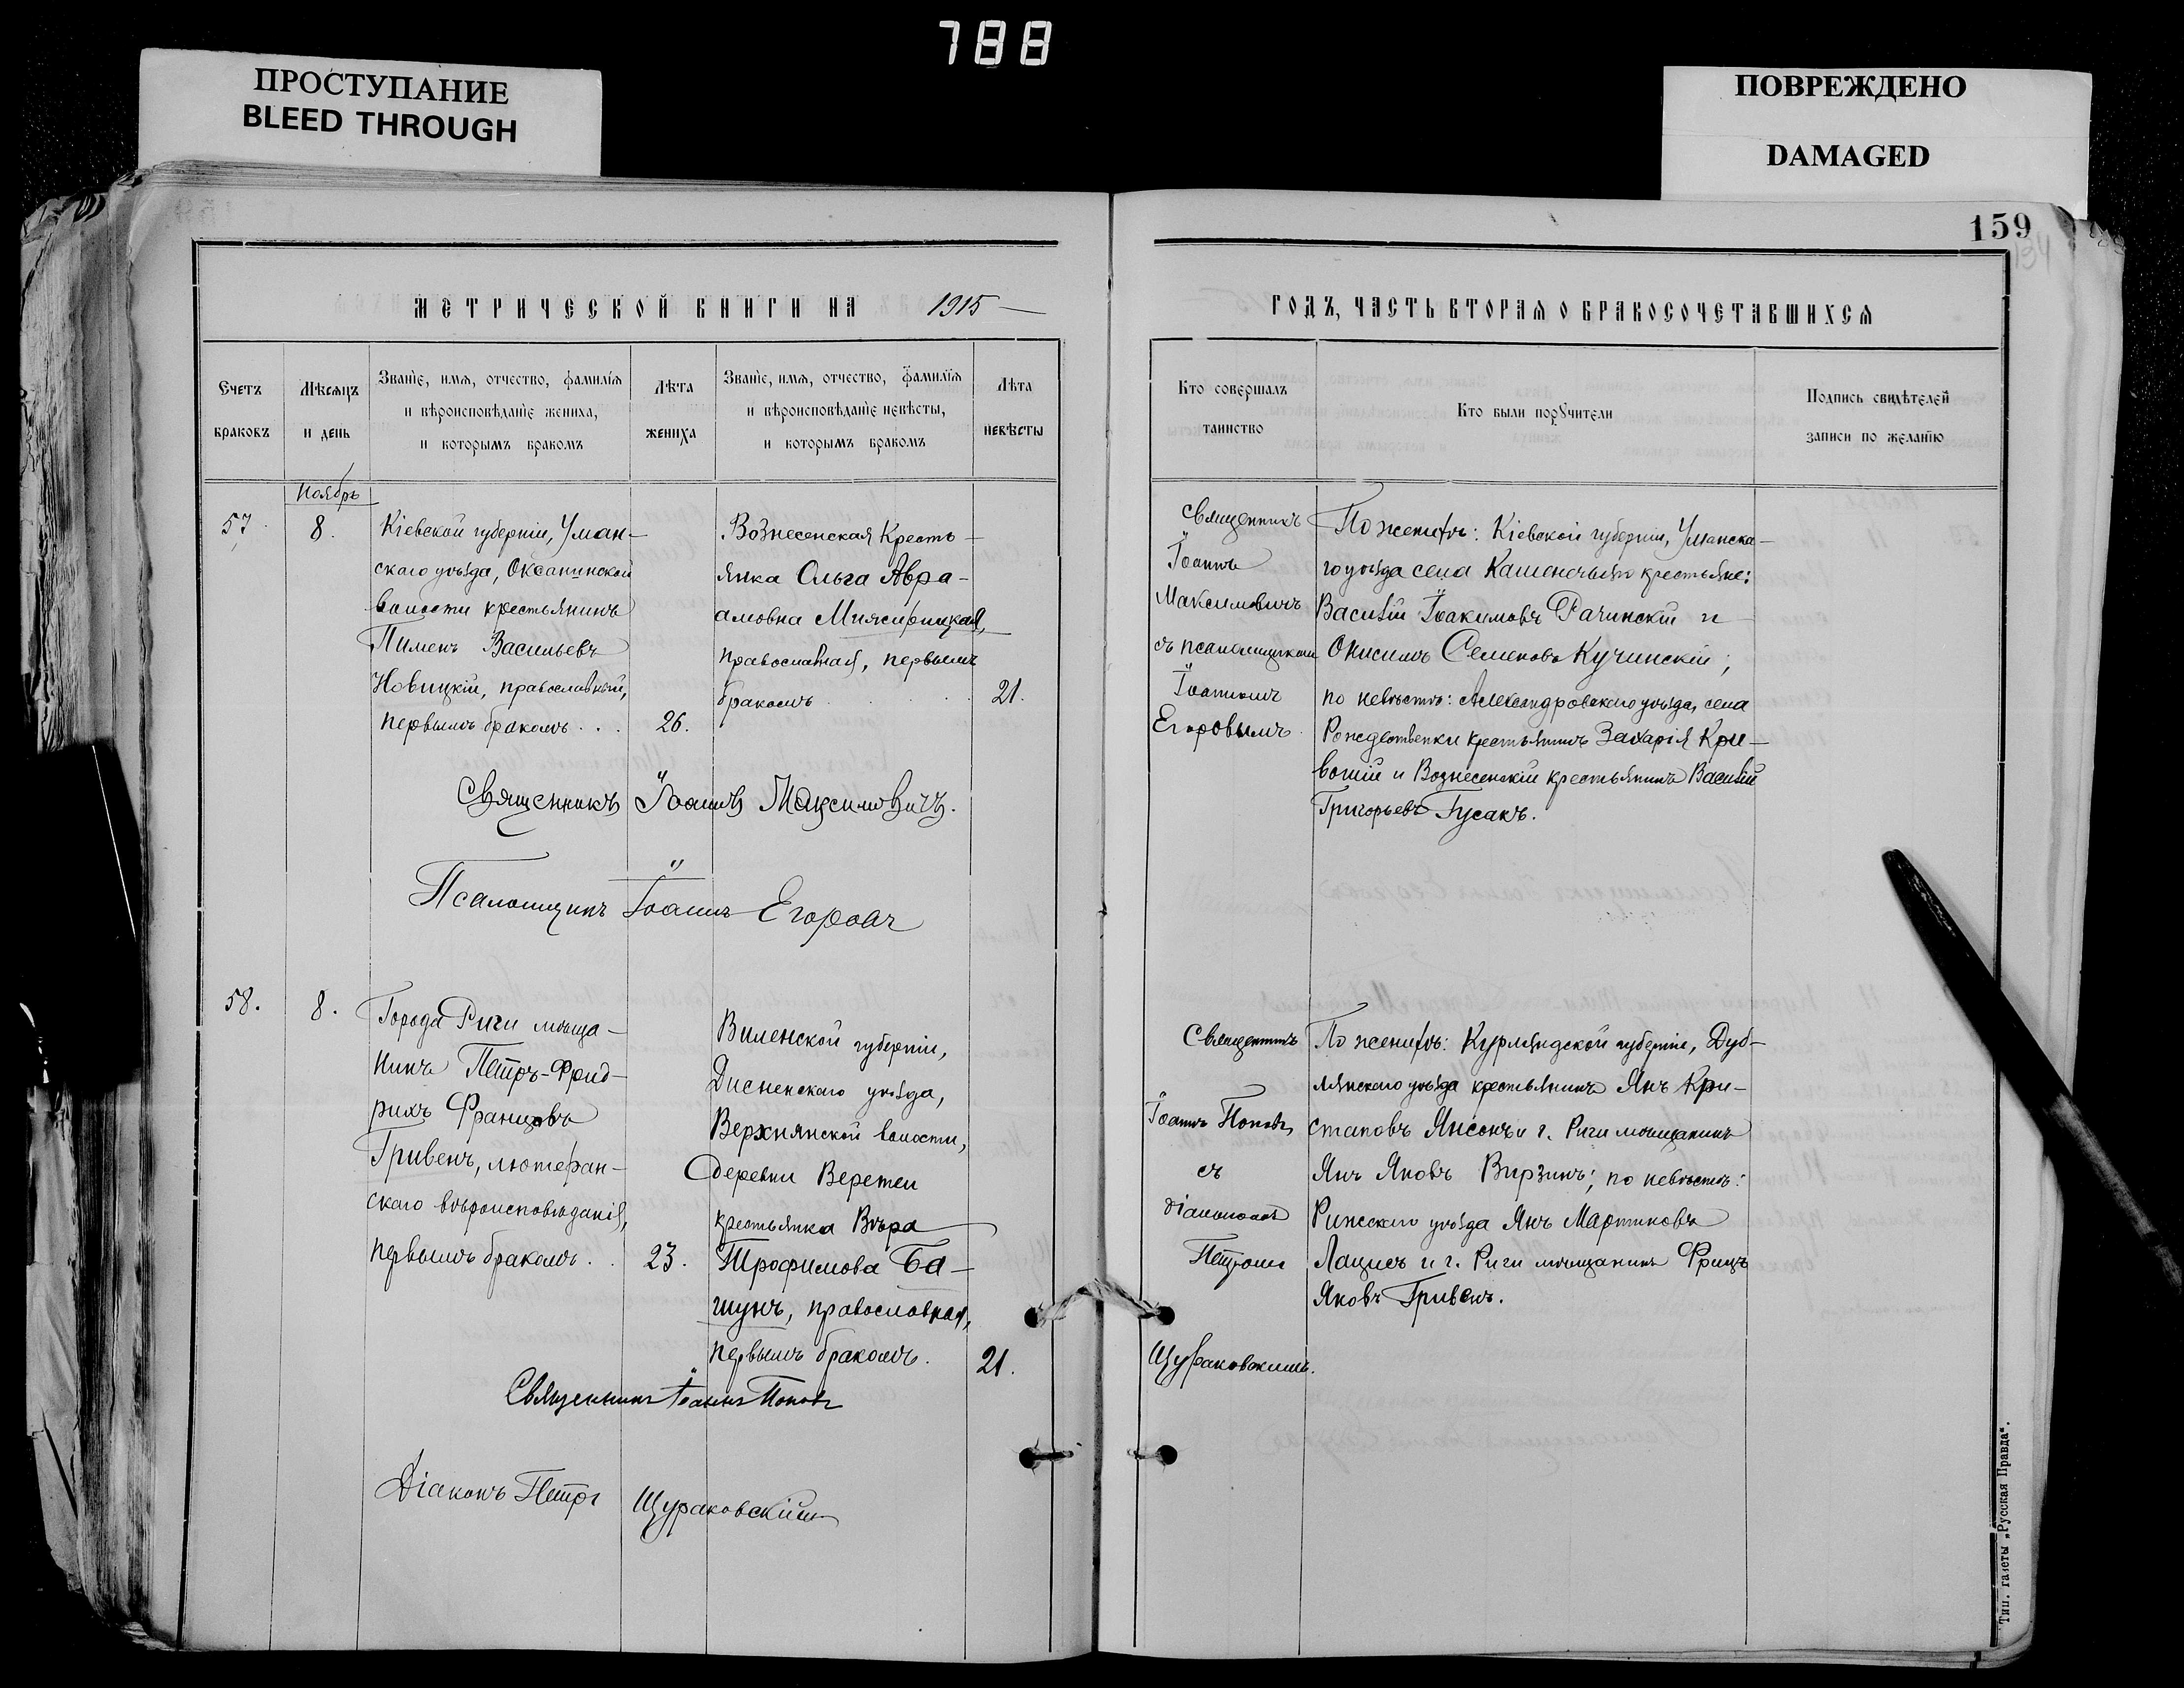 788
ПРОСТУПАНИЕ
BLEED THROUGH
ПОВРЕЖДЕНО
DAMAGED
159
134
МЕТРИЧЕСКОЙ КНИГИ НА 1915
ГОДЪ, ЧАСТЬ ВТОРАЯ О БРАКОСОЧЕТАВШИХСЯ
Счетъ
браковъ
Мѣсяцъ
и день
Званіе, имя, отчество, фамилія
и вѣроисповѣданіе жениха,
и которымъ бракомъ
Лѣта
жениха
Званіе, имя, отчество, фамилія
и вѣроисповѣданіе невѣсты,
и которымъ бракомъ
Лѣта
невѣсты
Кто совершалъ
таинство
Кто были поручители
Подпись свидѣтелей
записи по желанію
Ноябрь
57.
8.
Кіевской губерніи, Уман-
скаго уѣзда, Оксанинской
волости крестьянинъ
Пименъ Васильевъ
Новицкій, православный,
первымъ бракомъ . . .
26.
Вознесенская Кресть-
янка Ольга Авра-
амовна
православная, первымъ
бракомъ
21.
Священникъ
Іоаннъ
Максимовичъ
съ псаломщикомъ
Іоанномъ
Егоровымъ.
По женихѣ: Кіевской губерніи, Уманска-
го уѣзда села крестьяне:
Василій Іоакимовъ Рачинскій и
Онисимъ Семеновъ Кучинскій;
по невѣстѣ: Александровскаго уѣзда, села
Рождественки крестьянинъ Захарія Кри-
вошій и Вознесенскій крестьянинъ Василій
Григорьевъ Гусакъ.
Священникъ Іоаннъ Максимовичъ.
Псаломщикъ Іоаннъ Егоровъ
58.
8.
Города Риги мѣща-
нинъ Петръ-Фрид-
рихъ Францовъ
Гривенъ, лютеран-
скаго вѣроисповѣданія,
первымъ бракомъ . .
23.
Виленской губерніи,
Дисненскаго уѣзда,
Верхнянской волости,
деревни Веретеи
крестьянка Вѣра
Трофимова Ба-
шунъ, православная,
первымъ бракомъ.
21.
Священникъ
Іоаннъ Поповъ
съ
діакономъ
Петромъ
Щураковскимъ.
По женихѣ: Курляндской губерніи, Дуб-
лянскаго уѣзда крестьянинъ Янъ Кри-
стаповъ Янсонъ и г. Риги мѣщанинъ
Янъ Яковъ Вирзинъ; по невѣстѣ:
Рижскаго уѣзда Янъ Мартиновъ
Лацисъ и г. Риги мѣщанинъ Фрицъ
Яковъ Гривенъ.
Священникъ Іоаннъ Поповъ
Діаконъ Петръ Щураковскій
Тип. газеты „Русская Правда“.